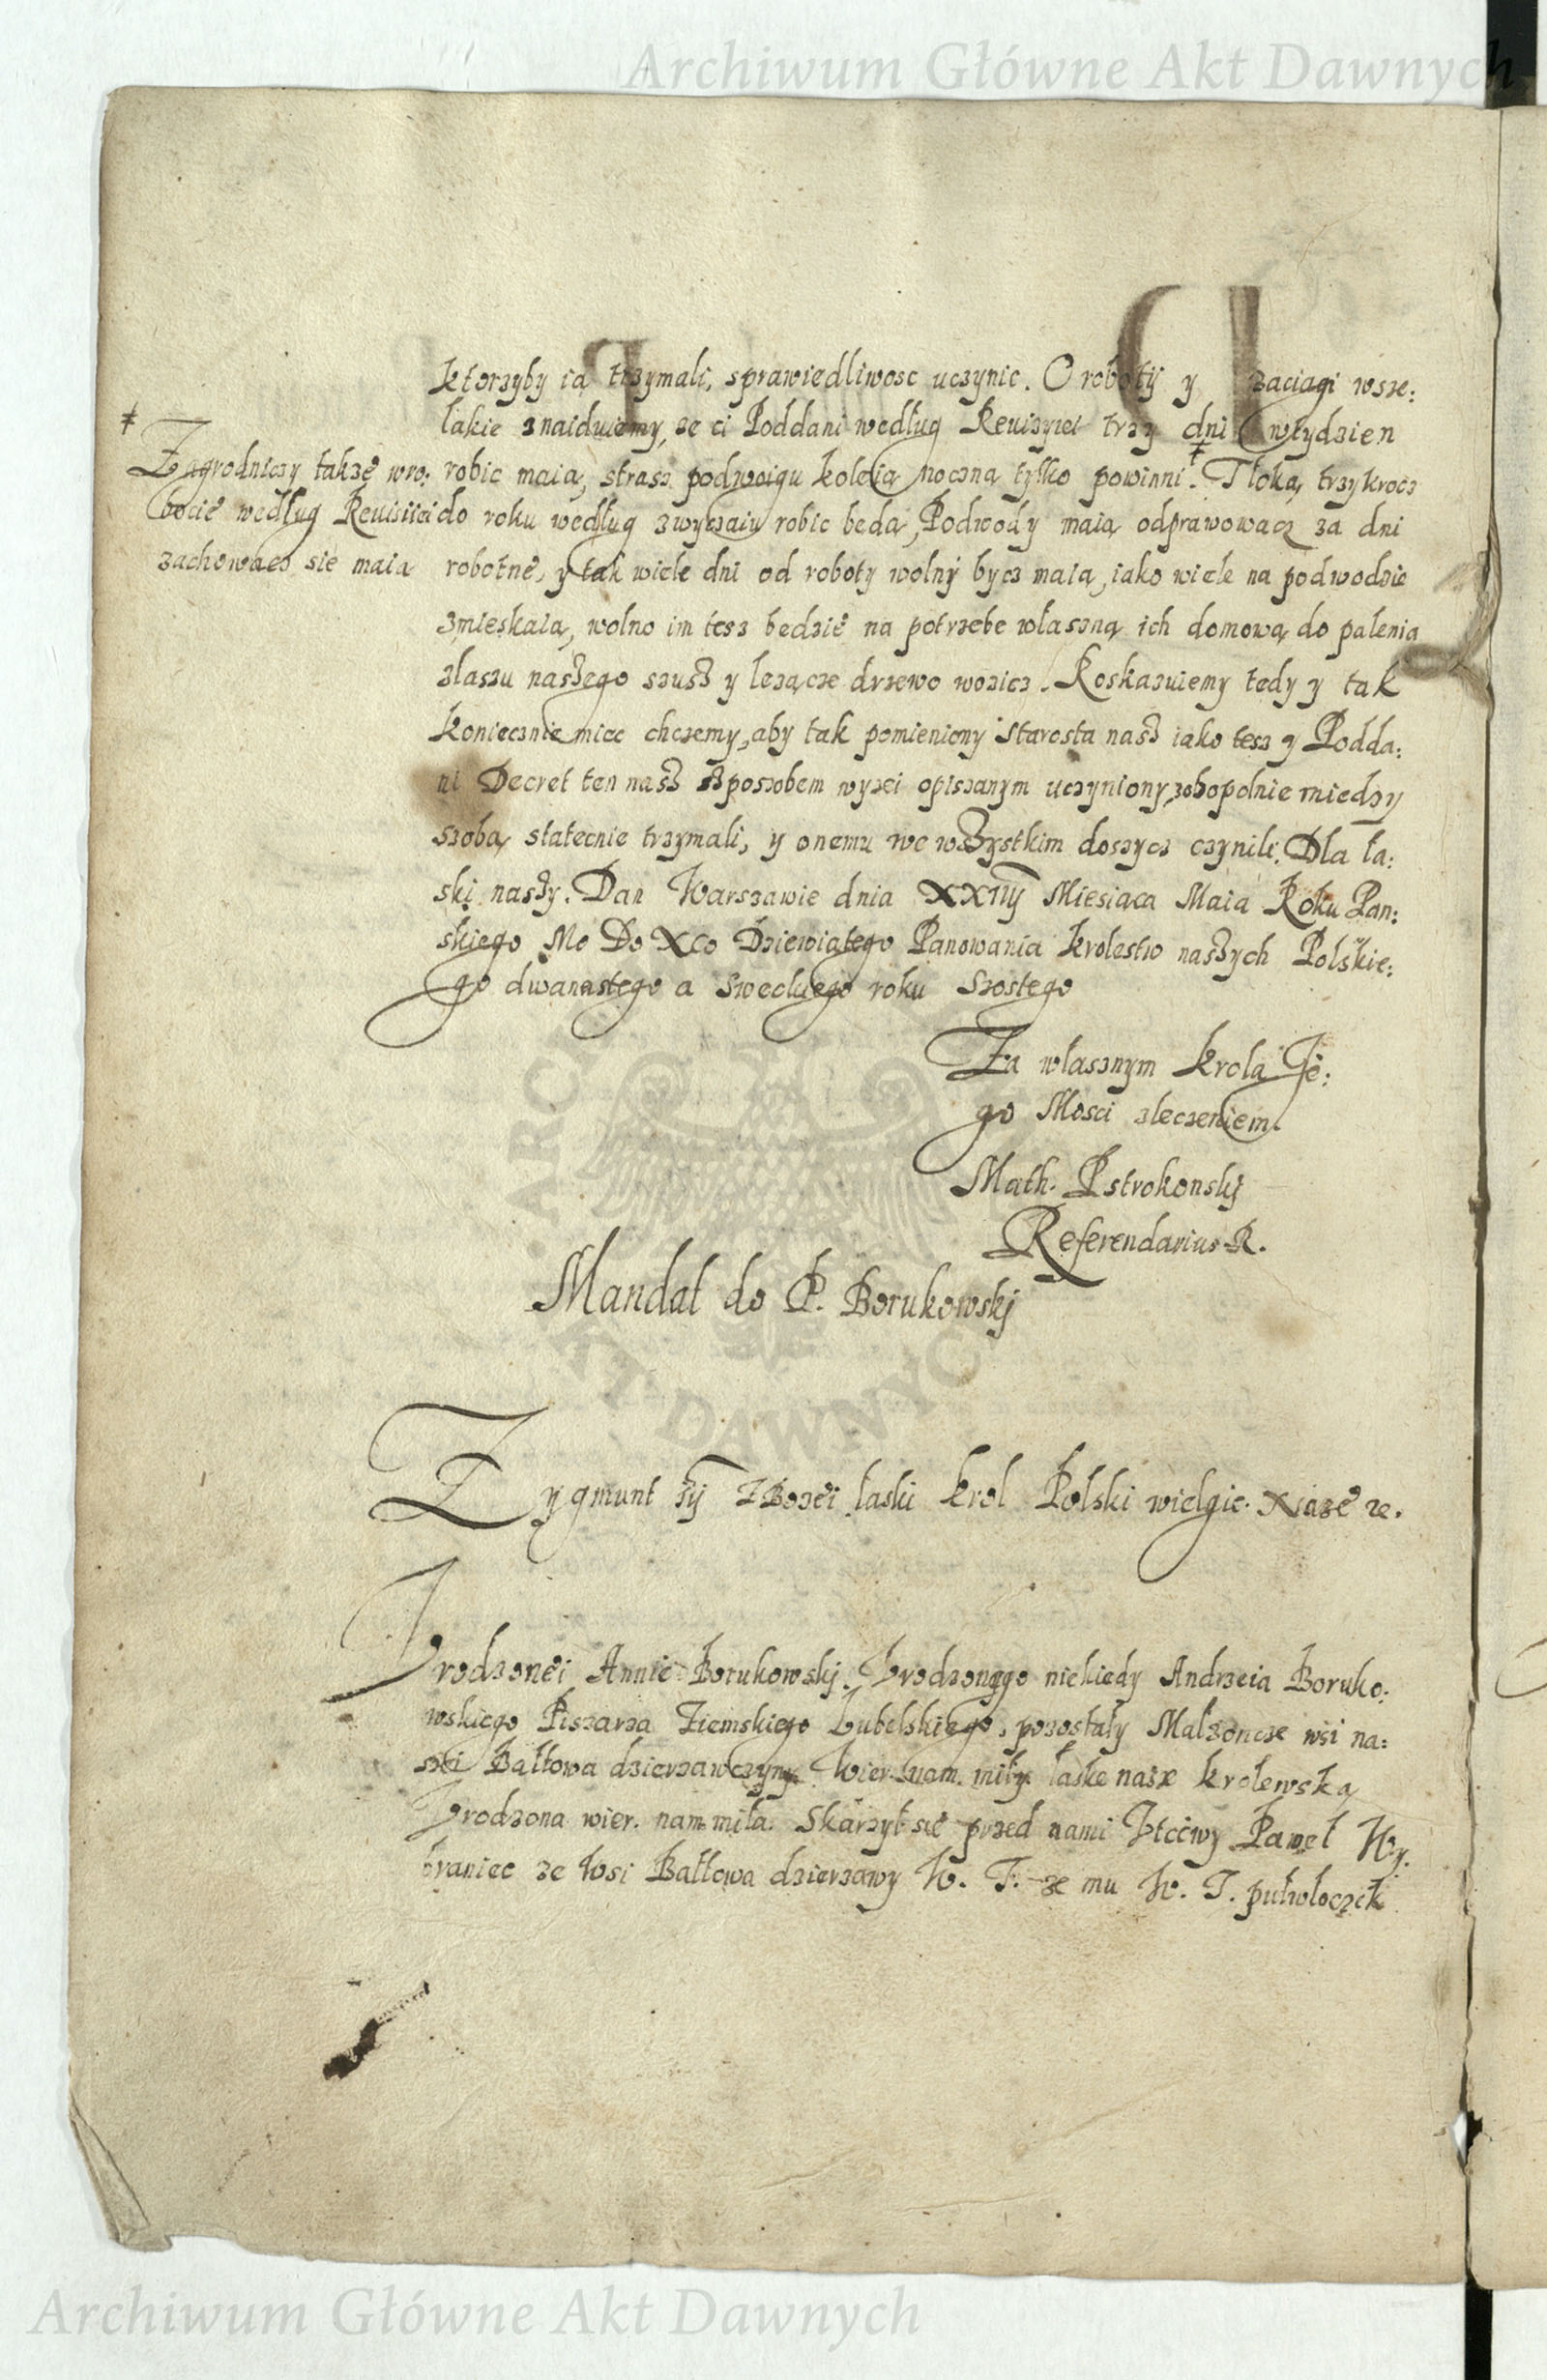 Archiwum Główne Akt Dawnych
ktorzyby ią trzymali, sprawiedliwosc uczynic. O roboty y zaciągi wsze:
lakie znaiduiemy, ze ci Poddani według Reuizyei trzy dni wtydzien
robic maią, straz podwoigu koleią nocną tylko powinni ‡. Tłoką, trzykrocz
do roku według zwyczaiu robic będą, Podwody maią odprawowacz za dni
robotne, y tak wiele dni od roboty wolny bycz maią, iako wiele na podwodzie
zmieskaią, wolno im tesz będzie na potrzebe właszną ich domową do palenia
zlaszu naszego szusz y lezącze drzewo wozicz. Roskazuiemy tedy y tak
koniecznie miec chczemy, aby tak pomieniony Starosta nasz iako tesz y Podda:
ni Decret ten nasz sposzobem wyzei opiszanym uczyniony, zobopolnie miedzy
szobą statecnie trzymali, y onemu we wszystkim doszycz czynili. Dla ła:
ski naszy. Dan Warszawie dnia XXIIII Miesiąca Maia Roku Pan:
skiego Mo Do XCo Dziewiątego Panowania krolestw naszych Polskie:
go dwanastego a Sweckiego roku Szostego
‡
Zagrodniczy także wro:
bocie według Reuisiei
zachowacz sie maią
Za własznym krola Je:
go Mosci zleczeniem.
Math. Pstrokonskj
Referendarius R.
Mandat do P. Borukowskj
Zygmunt III z Bozei łaski krol Polski wielgie. Xiąze ec.
Vrodzonei Annie Borukowskj. Vrodzonego niekiedy Andrzeia Boruko:
wskiego Piszarza Ziemskiego Lubelskiego, pozostały Małzoncze wsi na:
szei Bałtowa dzierzawczyny. Wier. nam. miły łaske nasze krolewską
Vrodzona wier. nam miła. Skarzył się przed nami Vtcciwy Paweł Wy:
braniec ze Wsi Bałtowa dzierzawy W. T. ze mu W. T. pułwłoczek
ARCH AKT DAWNYCH
Archiwum Główne Akt Dawnych